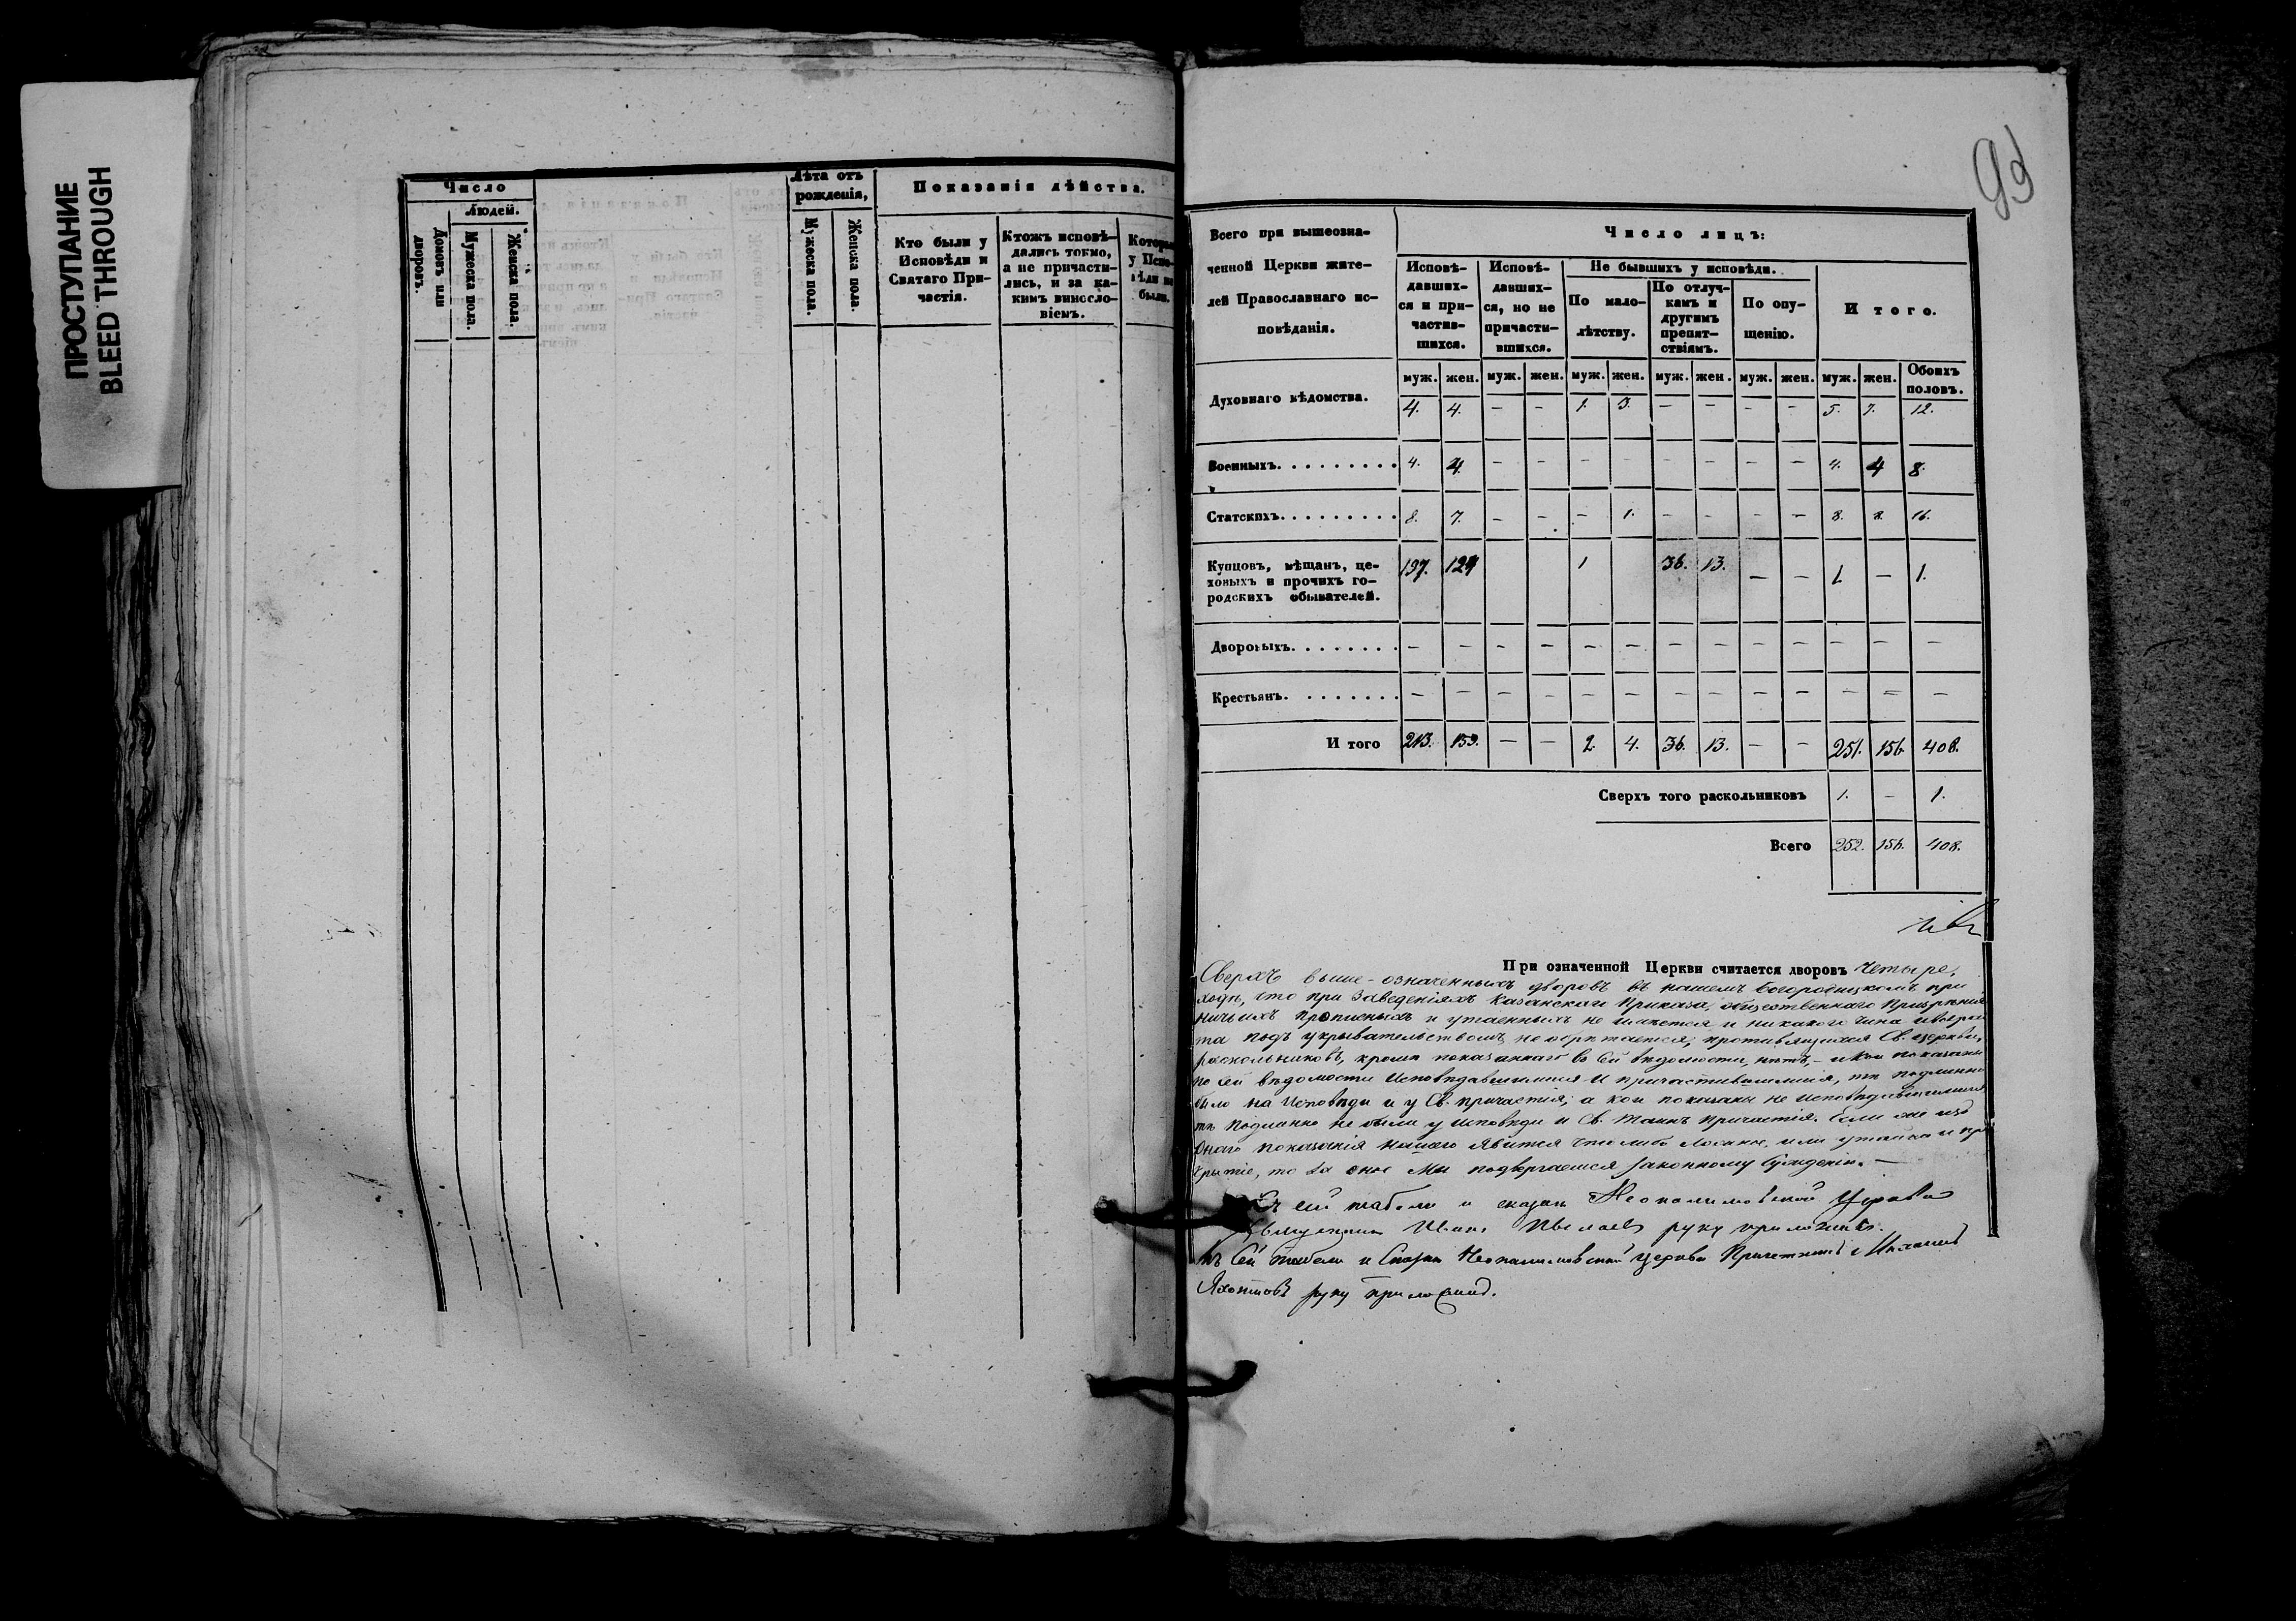 ПРОСТУПАНИЕ
BLEED THROUGH
Число
Людей.
Домовъ или дворовъ.
Мужеска пола.
Женска пола.
Лѣта отъ рожденія,
Мужеска пола.
Женска пола.
Показанія дѣйства.
Кто были у
Исповѣди и
Святаго При-
частія.
Ктожъ исповѣ-
дались токмо,
а не причасти-
лись, и за ка-
кимъ винносло-
віемъ.
у Испо-
были.
Всего при вышеозна-
ченной Церкви жите-
лей Православнаго ис-
повѣданія.
Число лицъ:
Исповѣ-
давших-
ся и при-
частив-
шихся.
Исповѣ-
давших-
ся, но не
причасти-
вшихся.
Не бывшихъ у исповѣди.
По мало-
лѣтству.
По отлуч-
камъ и
другимъ
препят-
ствіямъ.
По опу-
щенію.
Итого.
муж. жен. муж. жен. муж. жен. муж. жен. муж. жен. муж. жен. Обоихъ половъ.
Духовнаго вѣдомства. 4. 4. — — 1. 3. — — — — 5. 7. 12.
Военныхъ. 4. 4. — — — — — — — — 4. 4 8.
Статскихъ. 8. 7. — — — 1. — — — — 8. 8. 16.
Купцовъ, мѣщанъ, це-
ховыхъ и прочихъ го-
родскихъ обывателей.
197. 124 1 36. 13. — — 1. — 1.
Дворовыхъ. — — — — — — — — — — — — —
Крестьянъ. — — — — — — — — — — — = —
И того 213. 139. — — 2. 4. 36. 13. — — 251. 156. 408.
Сверхъ того раскольниковъ 1. — 1.
Всего 252. 156. 408.
При означенной Церкви считается дворовъ четыре,
Сверхъ выше-означенныхъ дворовъ въ нашемъ Богородицкомъ при
ходѣ, что при Заведеніяхъ Казанскаго Приказа, общественнаго Призрѣнія
ничьихъ прописныхъ и утаенныхъ не имѣется и никакого чина
та подъ укрывательствомъ не обрѣтается; противящихся Св. Церкви,
раскольниковъ, кромѣ показаннаго въ сей вѣдомости, нѣтъ, – и кои показаны
по сей вѣдомости Исповѣдавшимися и причастившимися, тѣ подлинно
было на Исповѣди и у Св. причастія; а кои показаны не исповѣдавшимися
тѣ подлинно не были у исповѣди и Св. Таинъ причастія. Если же изъ
онаго показанія нашего явится что либо ложное, или утайка и
крытіе, то за оное мы подвергаемся законному сужденію. —
Къ сей табели и сказкѣ Неопалимовской Церкви
Священникъ Иванъ руку приложилъ.
Къ сей табели и сказкѣ Неопалимовской церкви Причетникъ Михаилъ
Яхонтовъ руку приложилъ.